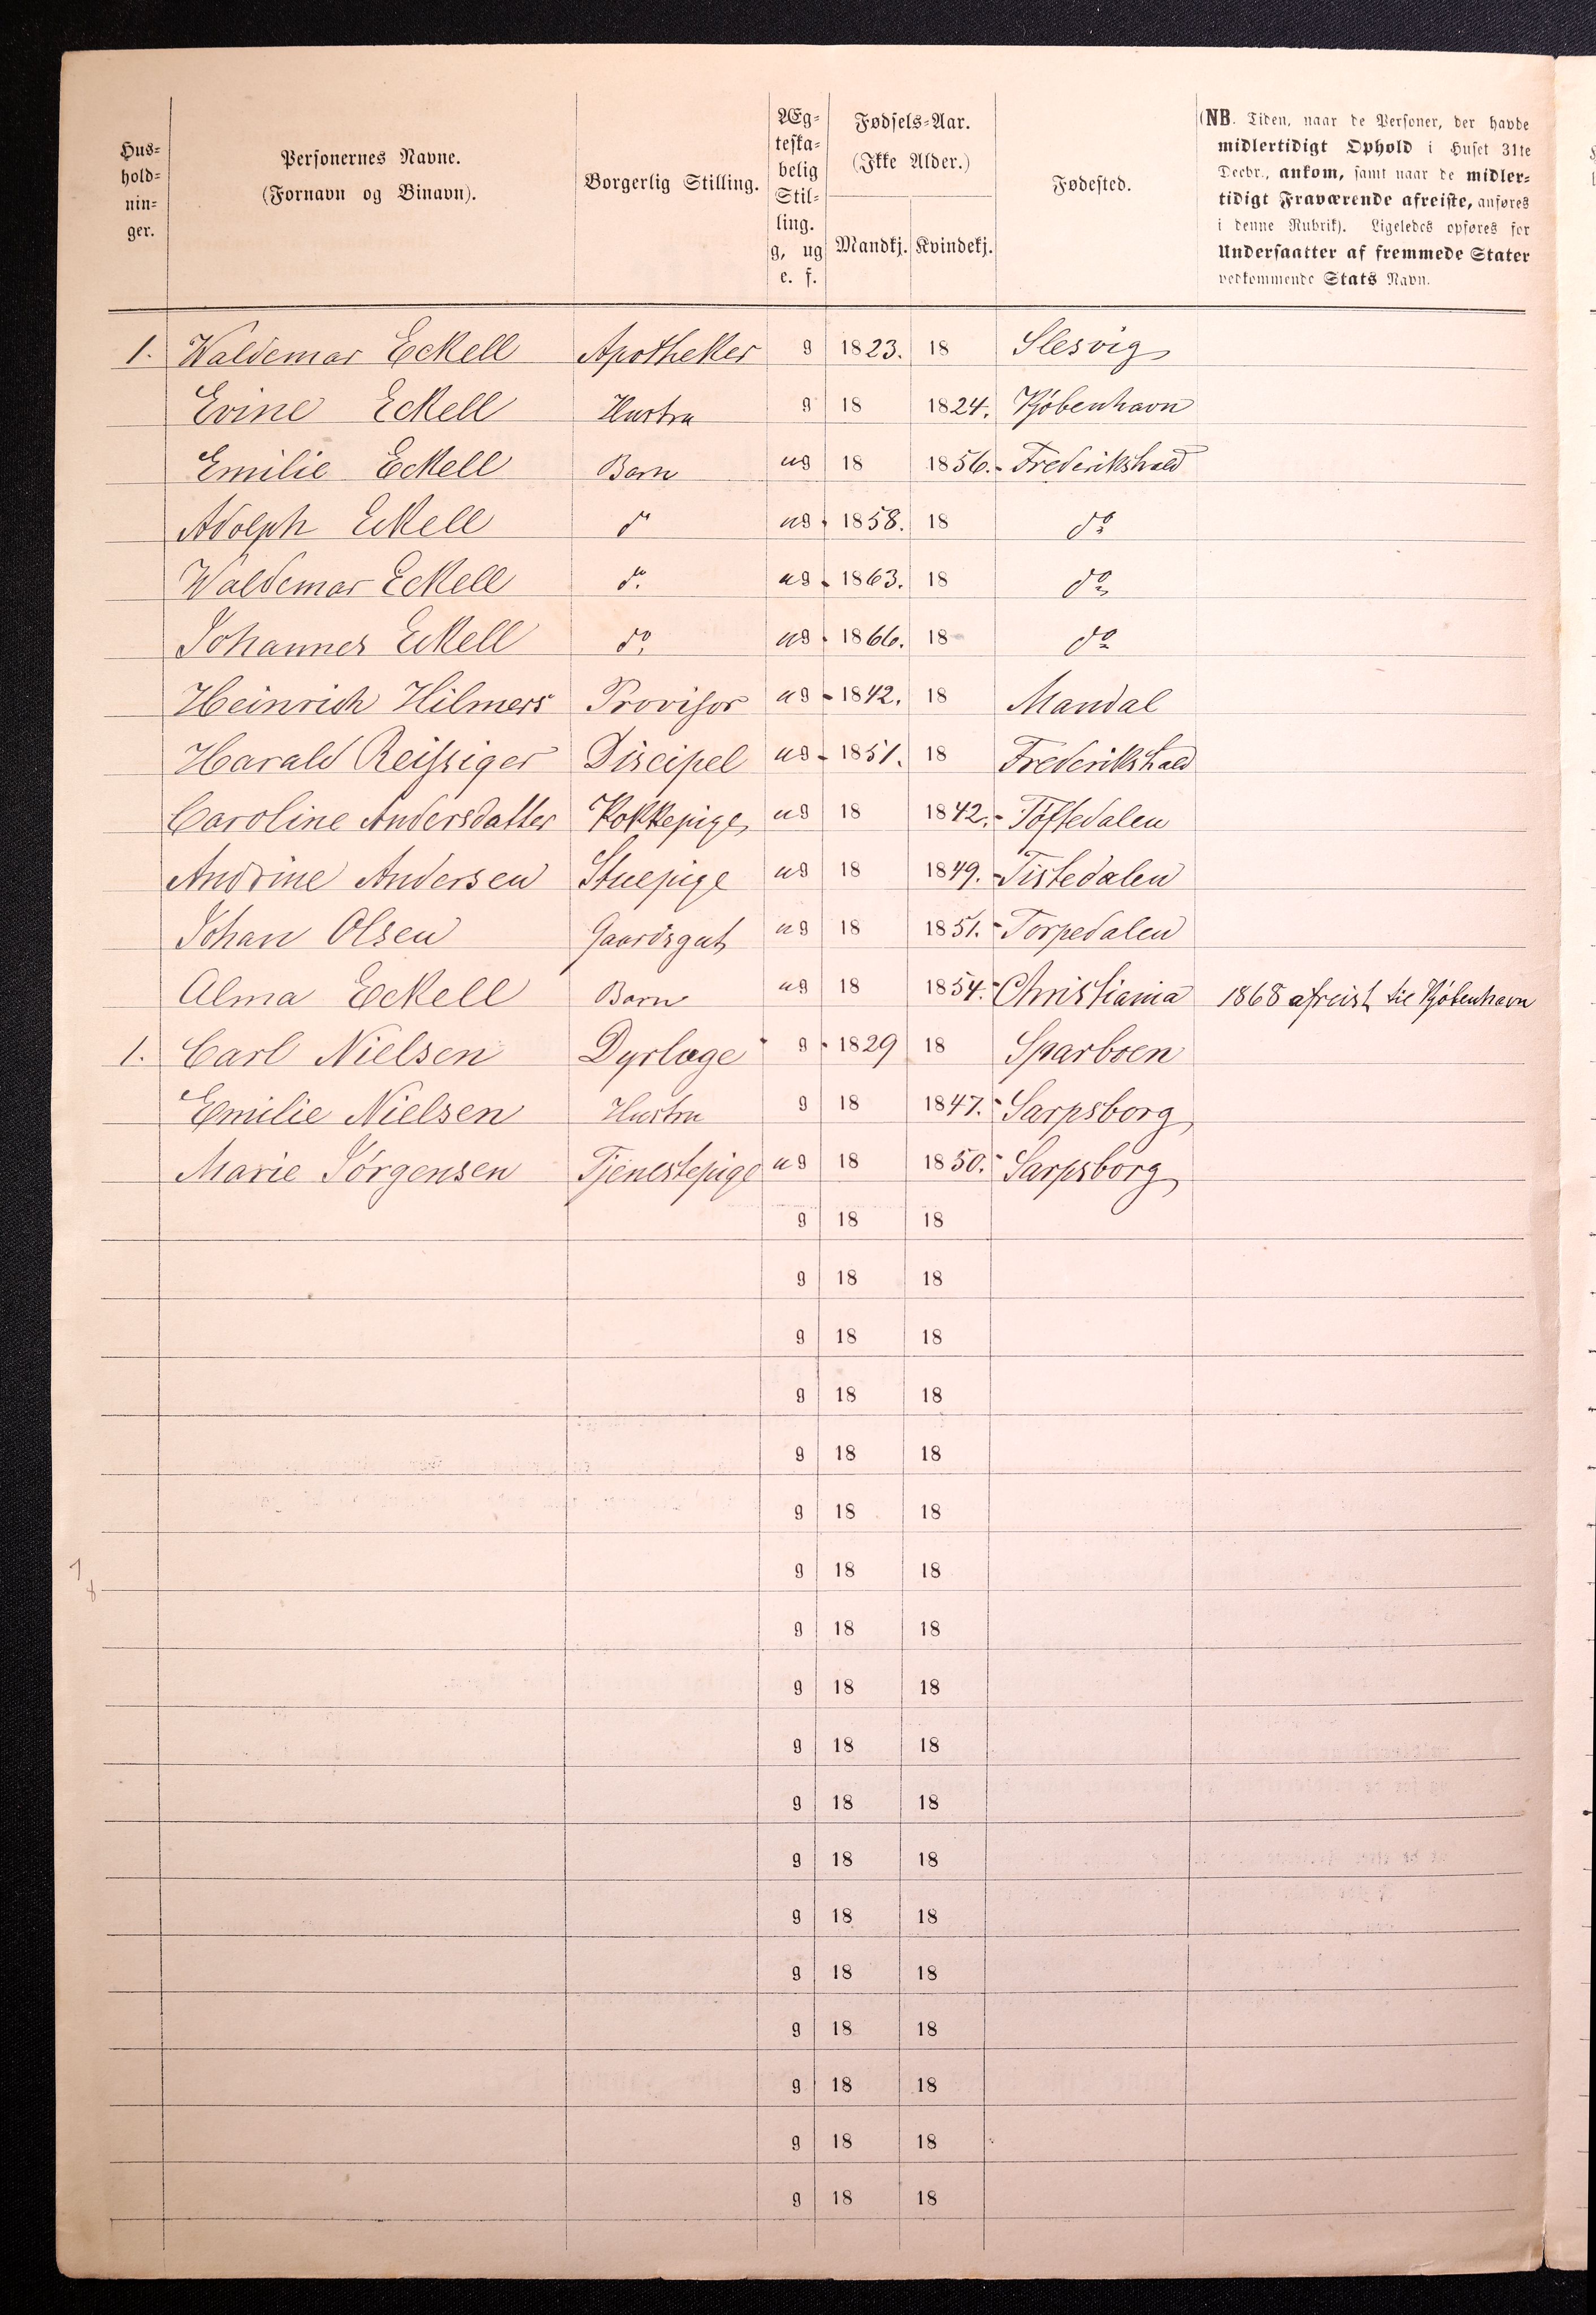 Hus-
hold-
nin-
ger.
Personernes Navne.
(Fornavn og Binavn).
Borgerlig Stilling.
Æg-
teska-
belig
Stil-
ling.
g, ug
e. f.
Fødsels-Aar.
(Ikke Alder.)
Mandkj. Kvindekj.
Fødested.
(NB. Tiden, naar de Personer, der havde
midlertidigt Ophold i Huset 31te
Decbr., ankom, samt naar de midler-
tidigt Fraværende afreiste, anføres
i denne Rubrik). Ligeledes opføres for
Undersaatter af fremmede Stater
vedkommende Stats Navn.
1. Waldemar Eckell Apotheker g 1823. 18 Slesvig
Evine Eckell Hustru g 18 1824. Kjöbenhavn
Emilie Eckell Barn ug 18 1856. - Frederikshald
Adolph Eckell do ug 1858. 18 do
Waldemar Eckell do. ug 1863. 18 do
Johannes Eckell do. ug 1866. 18 do
Heinrich Hilmers Provisor ug - 1842. 18 Mandal
Harald Reissiger Discipel ug - 1851. 18 Frederikshald
Caroline Andersdatter Kokkepige ug 18 1842. - Töftedalen
Andrine Andersen Stuepige ug 18 1849. - Tistedalen
Johan Olsen Gaardsgut ug 18 1851. - Torpedalen
Alma Eckell Barn ug 18 1854. - Christiania 1868 afreist til Kjöbenhavn
1. Carl Nielsen Dyrlæge g 1829 18 Sparboen
Emilie Nielsen Hustru g 18 1847. - Sarpsborg
Marie Jörgensen Tjenestepige ug 18 1850. - Sarpsborg
g 18 18
g 18 18
g 18 18
g 18 18
g 18 18
g 18 18
g 18 18
g 18 18
g 18 18
g 18 18
g 18 18
g 18 18
g 18 18
g 18 18
g 18 18
g 18 18
g 18 18
g 18 18